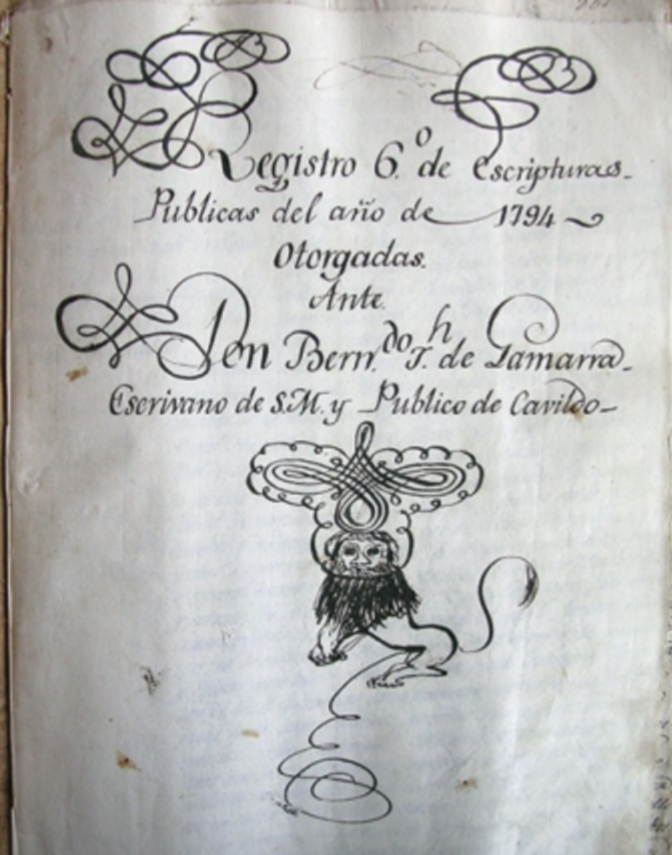 Registro 6.º de Escripturas
Publicas del año de 1794
Otorgadas.
Ante.
Don Bern.do J.h de Gamarra
Escrivano de S.M. y Publico de Cavildo